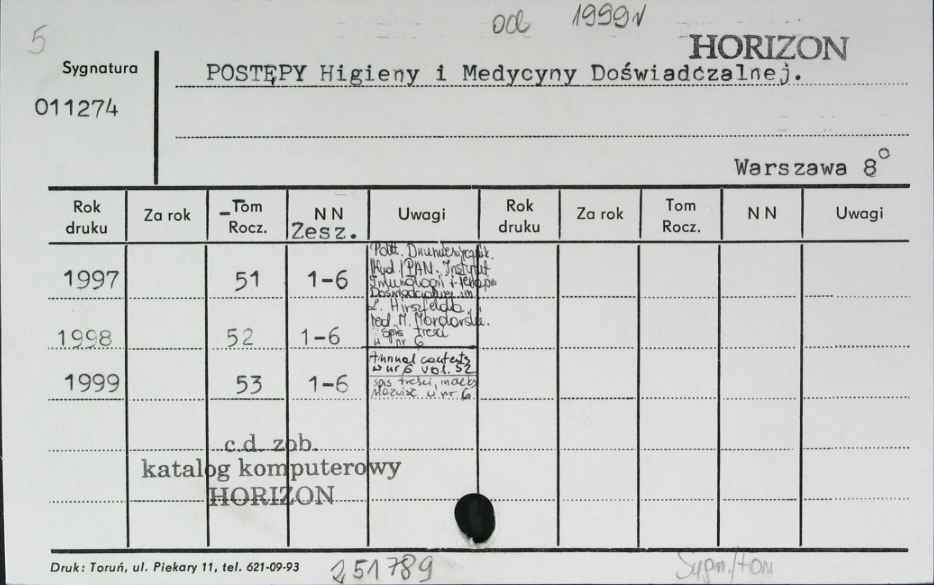 5
od 1999
HORIZON
Sygnatura
011274
POSTĘPY Higieny i Medycyny Doświadczalnej.
Warszawa 8°
Rok druku
Za rok
Tom Rocz.
N N Zesz.
Uwagi
Rok druku
Za rok
Tom Rocz.
N N
Uwagi
1997 51 1-6
PAN. Instytut
Immunologii i Terapii
Doświadczalnej im.
L. Hirszfelda.
red. M. Mordarski.
spis treści
w nr 6
1998 52 1-6
Annual contents
w nr 6 vol. 52
1999 53 1-6
spis treści,
w nr 6
c.d. zob.
katalog komputerowy
HORIZON
Druk: Toruń, ul. Piekary 11, tel. 621-09-93
251789
Sygn./tom